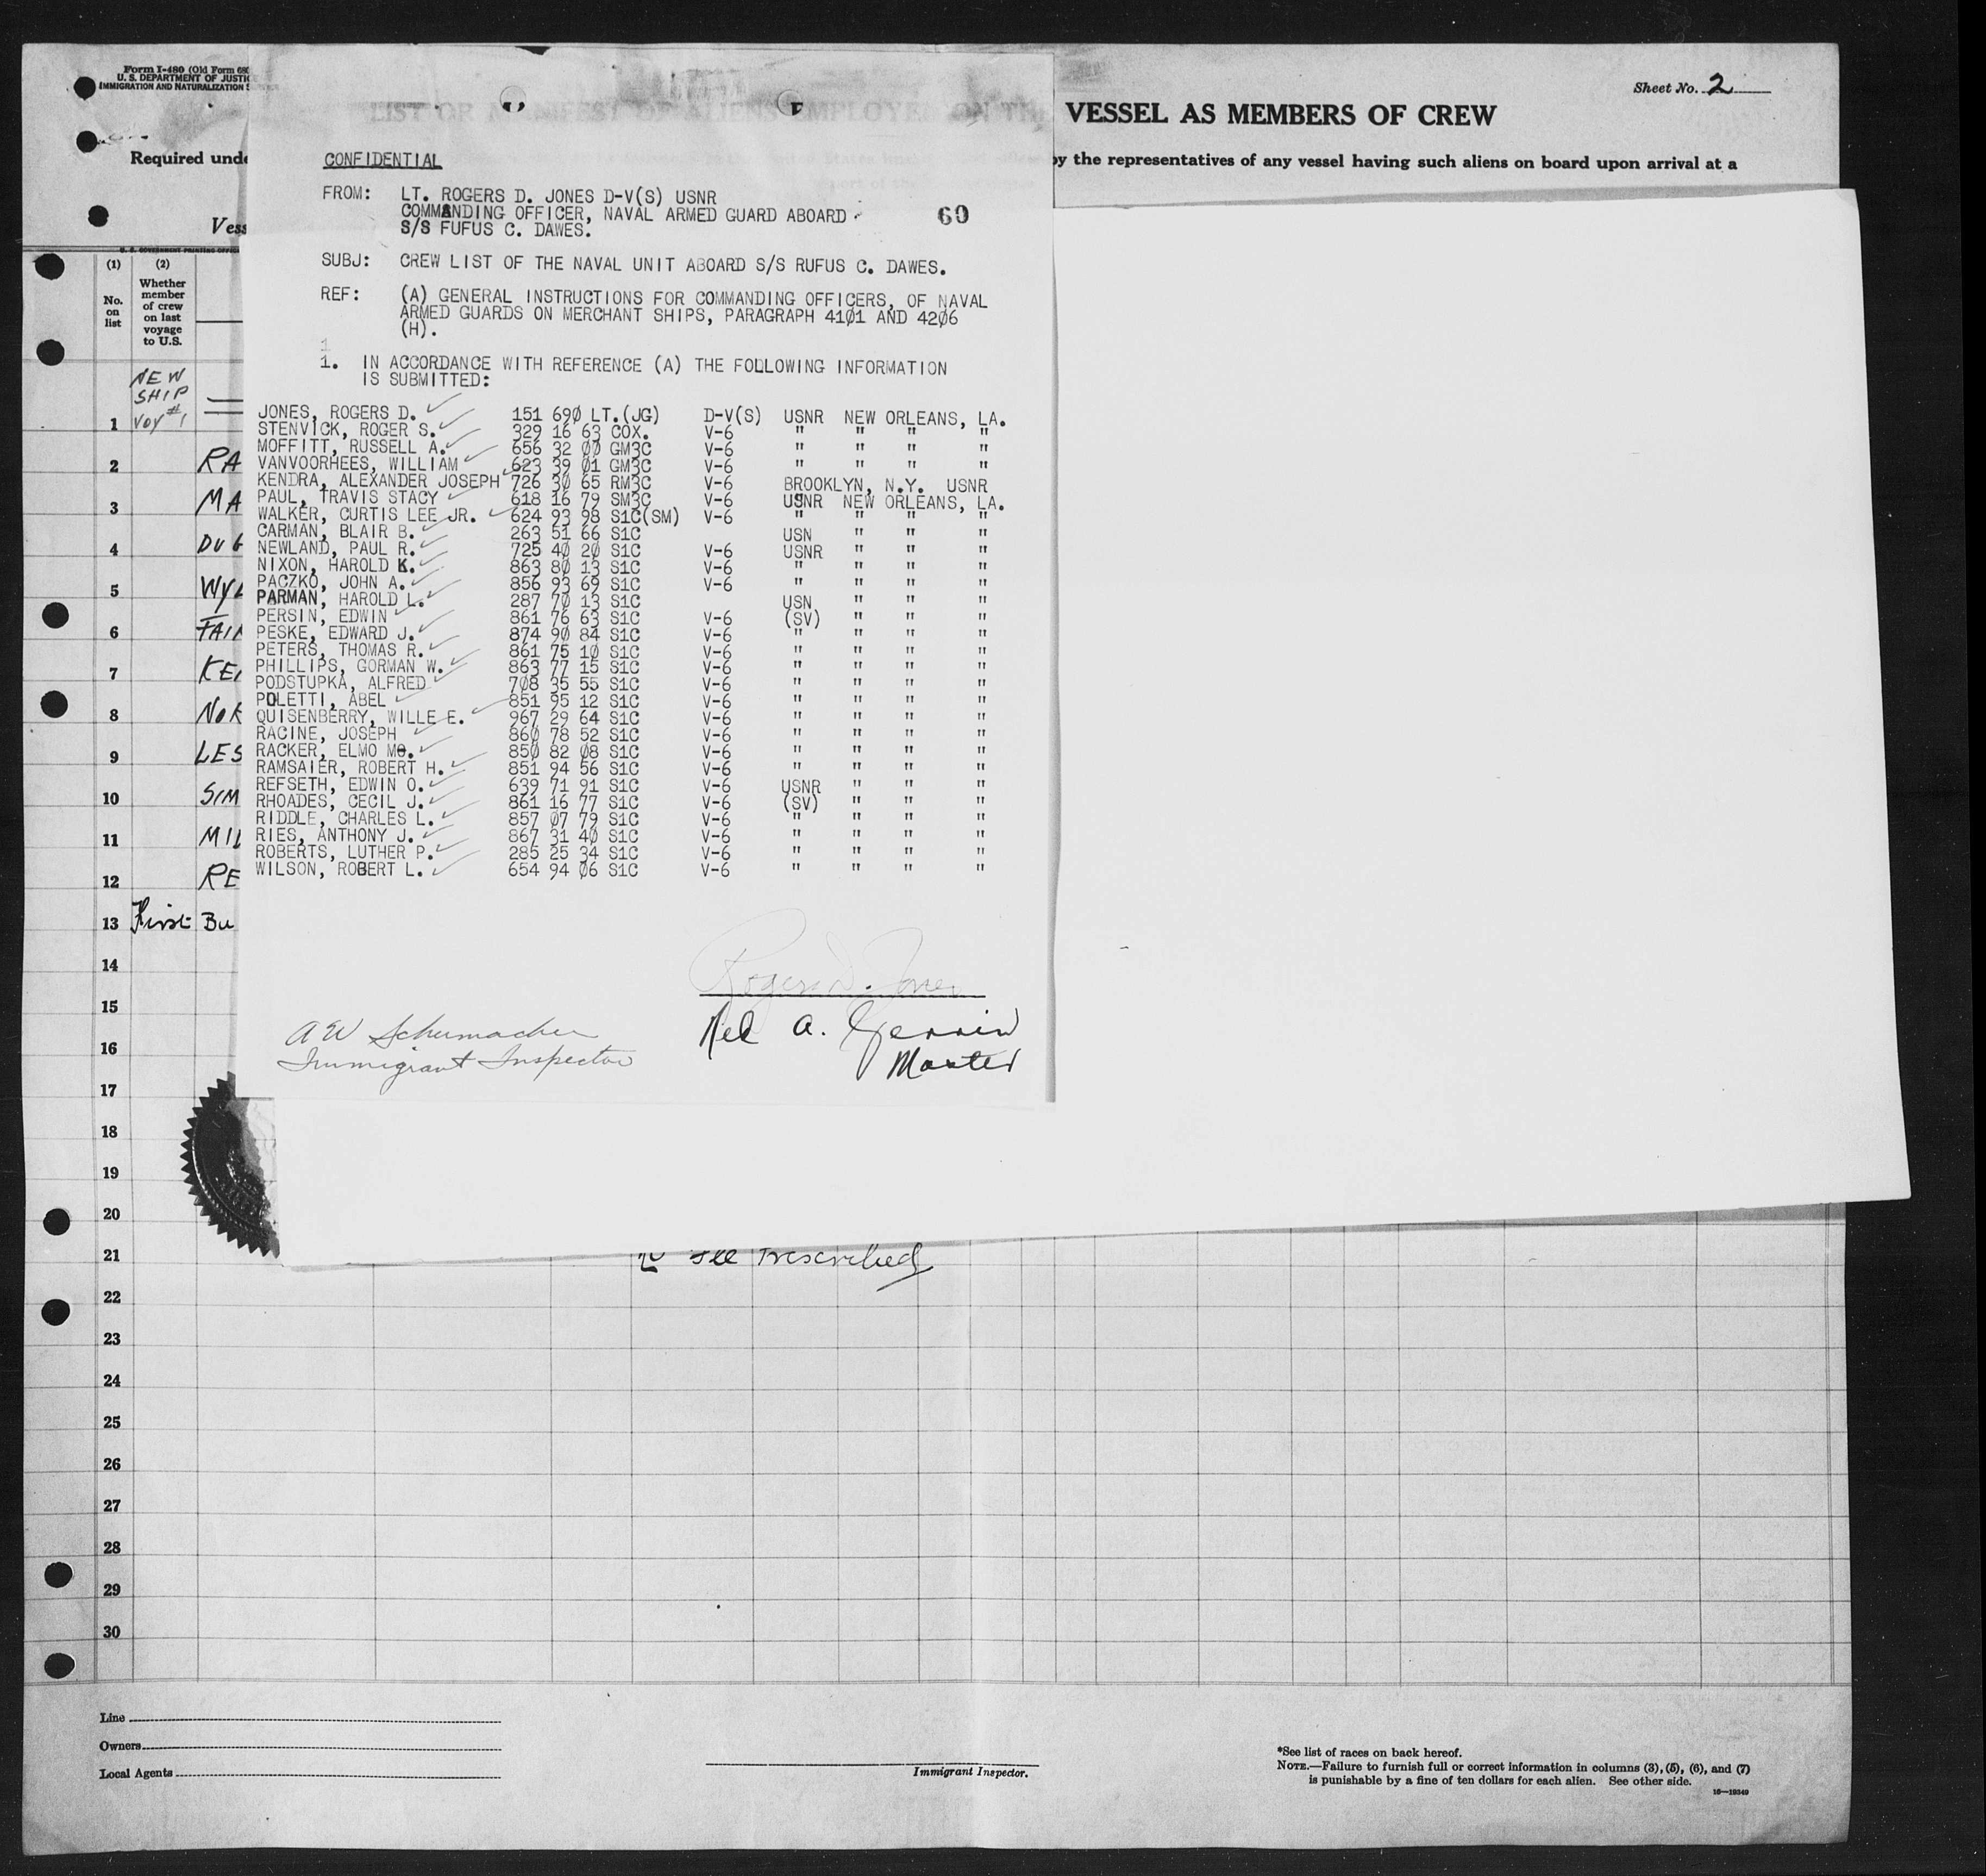 Form I-480 (Old Form 680
U. S. DEPARTMENT OF JUSTIC
IMMIGRATION AND NATURALIZATION S
Sheet No. 2
LIST OR MANIFEST OF ALIENS EMPLOYED ON THE VESSEL AS MEMBERS OF CREW
Required unde
by the representatives of any vessel having such aliens on board upon arrival at a
Vess
CONFIDENTIAL
FROM: LT. ROGERS D. JONES D-V(S) USNR
COMMANDING OFFICER, NAVAL ARMED GUARD ABOARD
S/S FUFUS C. DAWES.
60
SUBJ: CREW LIST OF THE NAVAL UNIT ABOARD S/S RUFUS C. DAWES.
REF: (A) GENERAL INSTRUCTIONS FOR COMMANDING OFFICERS, OF NAVAL
ARMED GUARDS ON MERCHANT SHIPS, PARAGRAPH 4101 AND 4206
(H).
1
1. IN ACCORDANCE WITH REFERENCE (A) THE FOLLOWING INFORMATION
IS SUBMITTED:
JONES, ROGERS D. 151 690 LT.(JG) D-V(S) USNR NEW ORLEANS, LA.
STENVICK, ROGER S. 329 16 63 COX. V-6 " " " "
MOFFITT, RUSSELL A. 656 32 00 GM3C V-6 " " " "
VANVOORHEES, WILLIAM 623 39 01 GM3C V-6 " " " "
KENDRA, ALEXANDER JOSEPH 726 30 65 RM3C V-6 BROOKLYN, N.Y. USNR
PAUL, TRAVIS STACY 618 16 79 SM3C V-6 USNR NEW ORLEANS, LA.
WALKER, CURTIS LEE JR. 624 93 98 S1C(SM) V-6 " " " "
CARMAN, BLAIR B. 263 51 66 S1C USN " " "
NEWLAND, PAUL R. 725 40 20 S1C V-6 USNR " " "
NIXON, HAROLD K. 863 80 13 S1C V-6 " " " "
PACZKO, JOHN A. 856 93 69 S1C V-6 " " " "
PARMAN, HAROLD L. 287 70 13 S1C USN " " "
PERSIN, EDWIN 861 76 63 S1C V-6 (SV) " " "
PESKE, EDWARD J. 874 90 84 S1C V-6 " " " "
PETERS, THOMAS R. 861 75 10 S1C V-6 " " " "
PHILLIPS, GORMAN W. 863 77 15 S1C V-6 " " " "
PODSTUPKA, ALFRED 708 35 55 S1C V-6 " " " "
POLETTI, ABEL 851 95 12 S1C V-6 " " " "
QUISENBERRY, WILLE E. 967 29 64 S1C V-6 " " " "
RACINE, JOSEPH 860 78 52 S1C V-6 " " " "
RACKER, ELMO MO. 850 82 08 S1C V-6 " " " "
RAMSAIER, ROBERT H. 851 94 56 S1C V-6 " " " "
REFSETH, EDWIN O. 639 71 91 S1C V-6 USNR " " "
RHOADES, CECIL J. 861 16 77 S1C V-6 (SV) " " "
RIDDLE, CHARLES L. 857 07 79 S1C V-6 " " " "
RIES, ANTHONY J. 867 31 40 S1C V-6 " " " "
ROBERTS, LUTHER P. 285 25 34 S1C V-6 " " " "
WILSON, ROBERT L. 654 94 06 S1C V-6 " " " "
Rogers D. Jones
A W Schumacher
Immigrant Inspector
A.
Master
(1) (2)
No. on list
Whether member of crew on last voyage to U.S.
NEW SHIP
1 VOY #1
2 RA
3 MA
4 DUG
5 WYL
6 FAIR
7 KEN
8 NOR
9 LES
10 SIM
11 MIL
12 RE
13 First Bu
14
15
16
17
18
19
20
21 Fee Prescribed
22
23
24
25
26
27
28
29
30
Line
Owners
Local Agents
Immigrant Inspector.
*See list of races on back hereof.
NOTE.—Failure to furnish full or correct information in columns (3), (5), (6), and (7)
is punishable by a fine of ten dollars for each alien. See other side.
16—19349